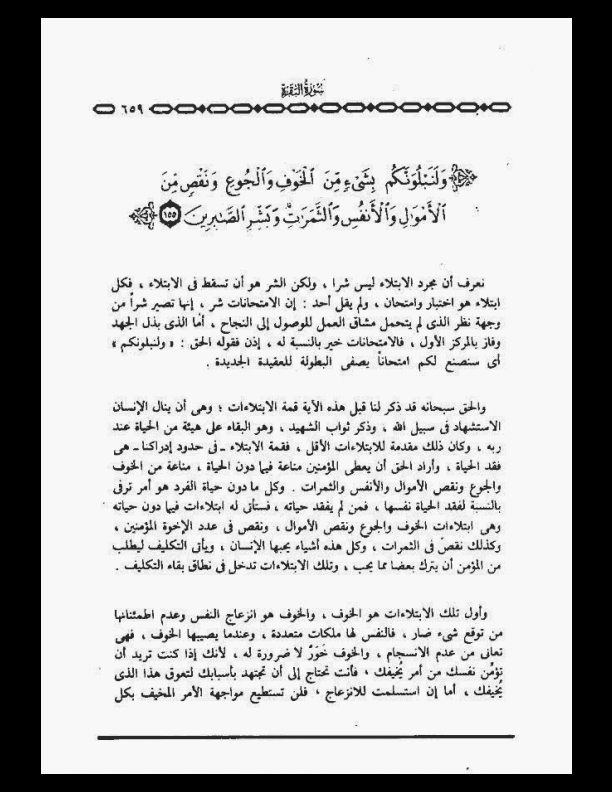 سُورَةُ البَقَرَةِ
٦٥٩
وَلَنَبْلُوَنَّكُم بِشَىْءٍ مِّنَ ٱلْخَوْفِ وَٱلْجُوعِ وَنَقْصٍ مِّنَ
ٱلْأَمْوَٰلِ وَٱلْأَنفُسِ وَٱلثَّمَرَٰتِ وَبَشِّرِ ٱلصَّٰبِرِينَ ١٥٥
نعرف أن مجرد الابتلاء ليس شرا ، ولكن الشر هو أن تسقط فى الابتلاء ، فكل
ابتلاء هو اختبار وامتحان ، ولم يقل أحد : إن الامتحانات شر ، إنها تصير شراً من
وجهة نظر الذى لم يتحمل مشاق العمل للوصول إلى النجاح ، أما الذى بذل الجهد
وفاز بالمركز الأول ، فالامتحانات خير بالنسبة له ، إذن فقوله الحق : « ولنبلونكم »
أى سنصنع لكم امتحاناً يصفى البطولة للعقيدة الجديدة .
والحق سبحانه قد ذكر لنا قبل هذه الآية قمة الابتلاءات ؛ وهى أن ينال الإنسان
الاستشهاد فى سبيل الله ، وذكر ثواب الشهيد ، وهو البقاء على هيئة من الحياة عند
ربه ، وكان ذلك مقدمة للابتلاءات الأقل ، فقمة الابتلاء ـ فى حدود إدراكنا ـ هى
فقد الحياة ، وأراد الحق أن يعطى المؤمنين مناعة فيما دون الحياة ، مناعة من الخوف
والجوع ونقص الأموال والأنفس والثمرات . وكل ما دون حياة الفرد هو أمر ترفى
بالنسبة لفقد الحياة نفسها ، فمن لم يفقد حياته ، فستأتى له ابتلاءات فيما دون حياته
وهى ابتلاءات الخوف والجوع ونقص الأموال ، ونقص فى عدد الإخوة المؤمنين ،
وكذلك نقصٌ فى الثمرات ، وكل هذه أشياء يحبها الإنسان ، ويأتى التكليف ليطلب
من المؤمن أن يترك بعضا مما يحب ، وتلك الابتلاءات تدخل فى نطاق بقاء التكليف .
وأول تلك الابتلاءات هو الخوف ، والخوف هو انزعاج النفس وعدم اطمئنانها
من توقع شىء ضار ، فالنفس لها ملكات متعددة ، وعندما يصيبها الخوف ، فهى
تعانى من عدم الانسجام ، والخوف خَوَرٌ لا ضرورة له ، لأنك إذا كنت تريد أن
تؤمِّن نفسك من أمر يُخيفك ، فأنت تحتاج إلى أن تجتهد بأسبابك لتعوق هذا الذى
يُخيفك ، أما إن استسلمت للانزعاج ، فلن تستطيع مواجهة الأمر المخيف بكل